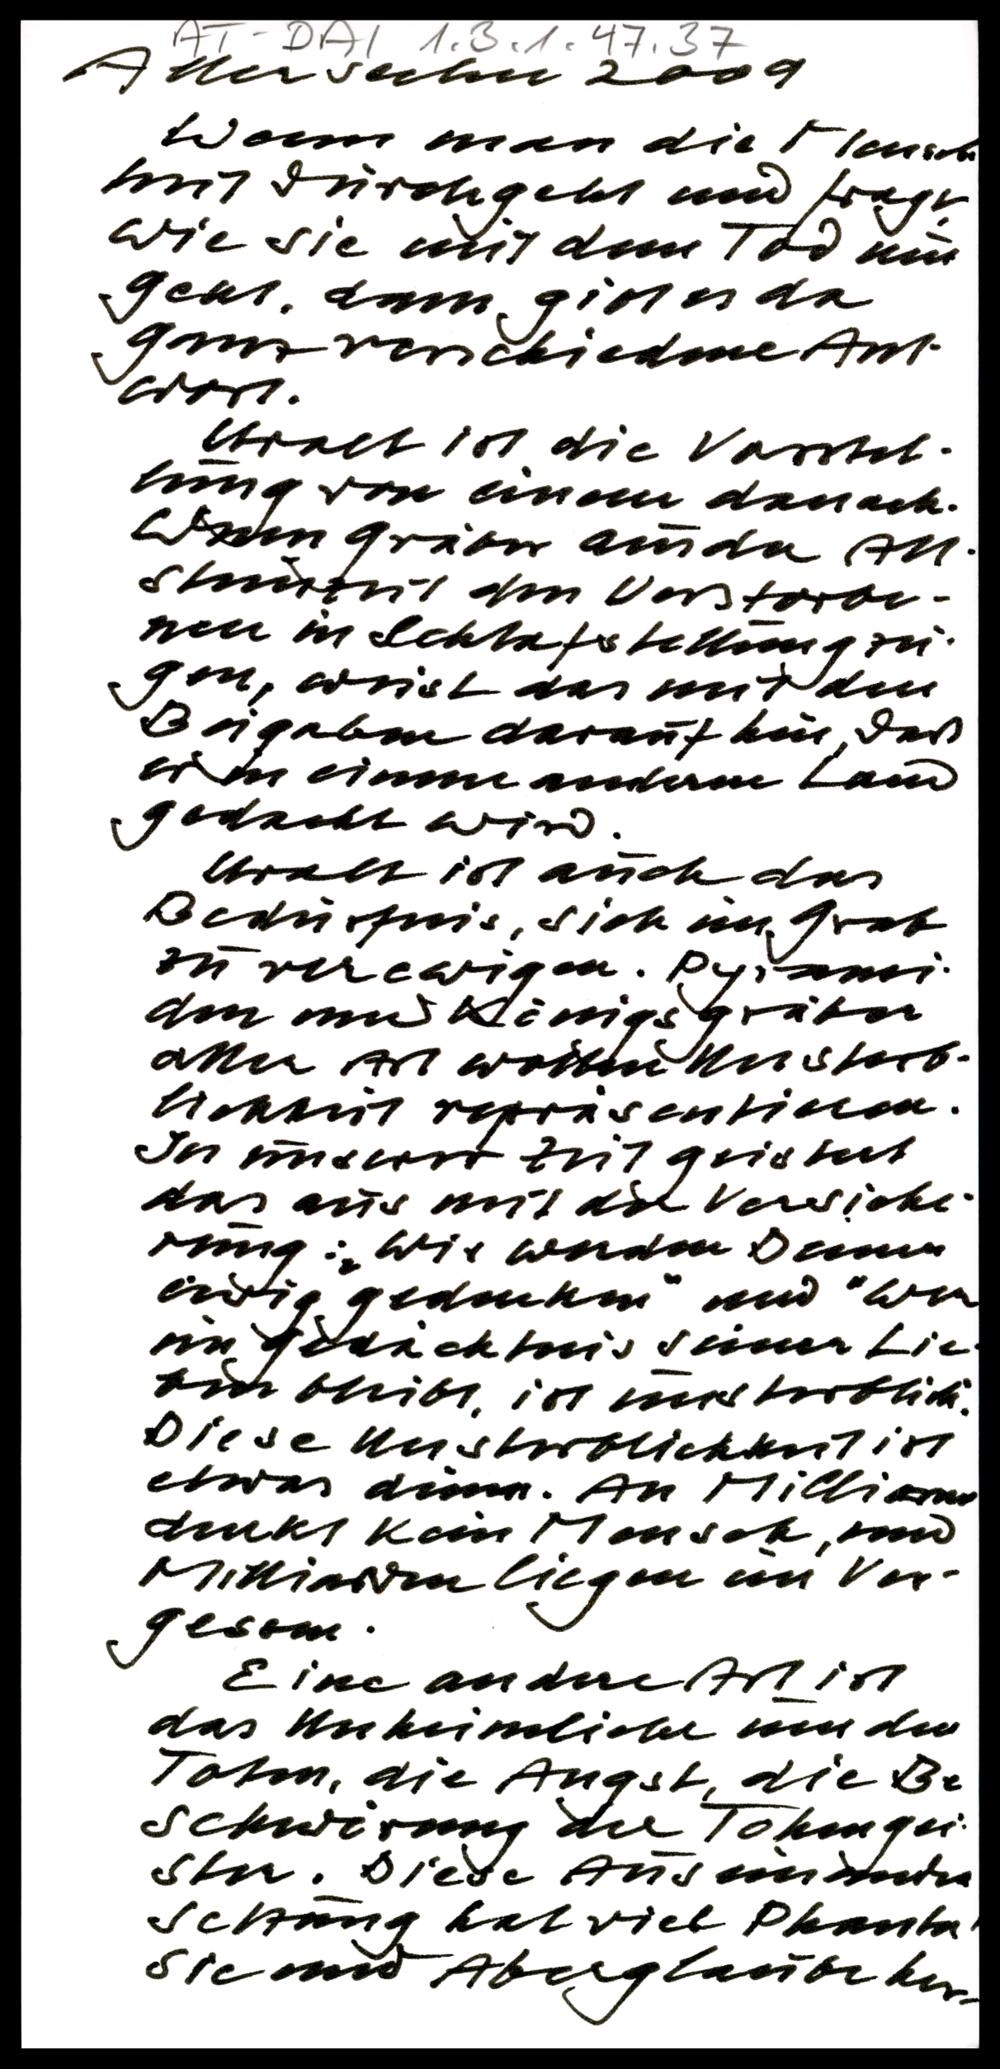 AT-DAI 1.3.1.47.37
Allerseelen 2009
Wenn man die Mensch
heit durchgeht und fragt,
wie sie mit dem Tod um
geht, dann gibt es da
ganz verschiedene Ant-
wort.
Uralt ist die Vorstel-
lung von einem danach.
Wenn Gräber aus der Alt-
steinzeit den Verstorbe-
nen in Schlafstellung zei-
gen, weist das mit den
Beigaben darauf hin, daß
er in einem anderen Land
gedacht wird.
Uralt ist auch das
Bedürfnis, sich im Grab
zu verewigen. Pyrami-
den und Königsgräber
aller Art wollen Unsterb-
lichkeit repräsentieren.
In unserer Zeit geistert
das aus mit der Versiche-
rung: „Wir werden Deiner
ewig gedenken" und "Wer
im Gedächtnis seiner Lie-
ben bleibt, ist unsterblich.
Diese Unsterblichkeit ist
etwas dünn. An Milliarden
denkt kein Mensch, und
Milliarden liegen im Ver-
gessen.
Eine andere Art ist
das Unheimliche um den
Toten, die Angst, die Be
schwörung der Totengei-
ster. Diese Auseinander
setzung hat viel Phanta-
sie und Aberglaube her-